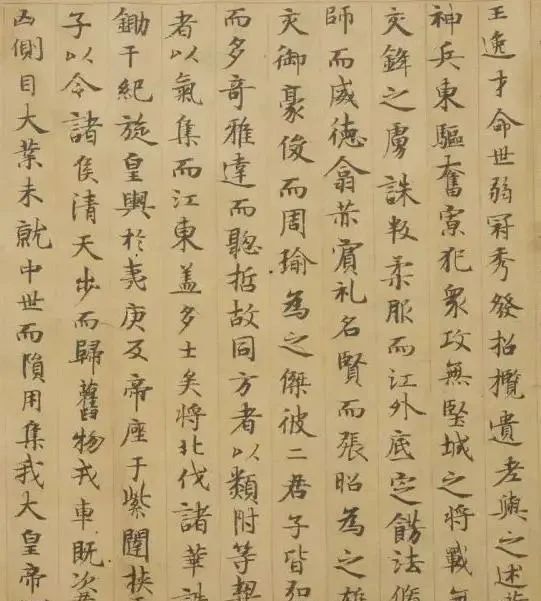 王逸才命世弱冠秀發招攬遺老與之述
神兵東驅奮寡犯衆攻無堅城之將戰無
交鋒之虜誅叛柔服而江外底定飭法脩
師而威德翕赫賓礼名賢而張昭為之雄
交御豪俊而周瑜為之傑彼二君子皆弘
而多奇雅達而聦哲故同方者以類附等契
者以氣集而江東盖多士矣將北伐諸華誅
鋤干紀旋皇輿於夷庚反帝座于紫闥挾
子以令諸侯清天步而歸舊物戎車既次
凶側目大業未就中世而隕用集我大皇帝